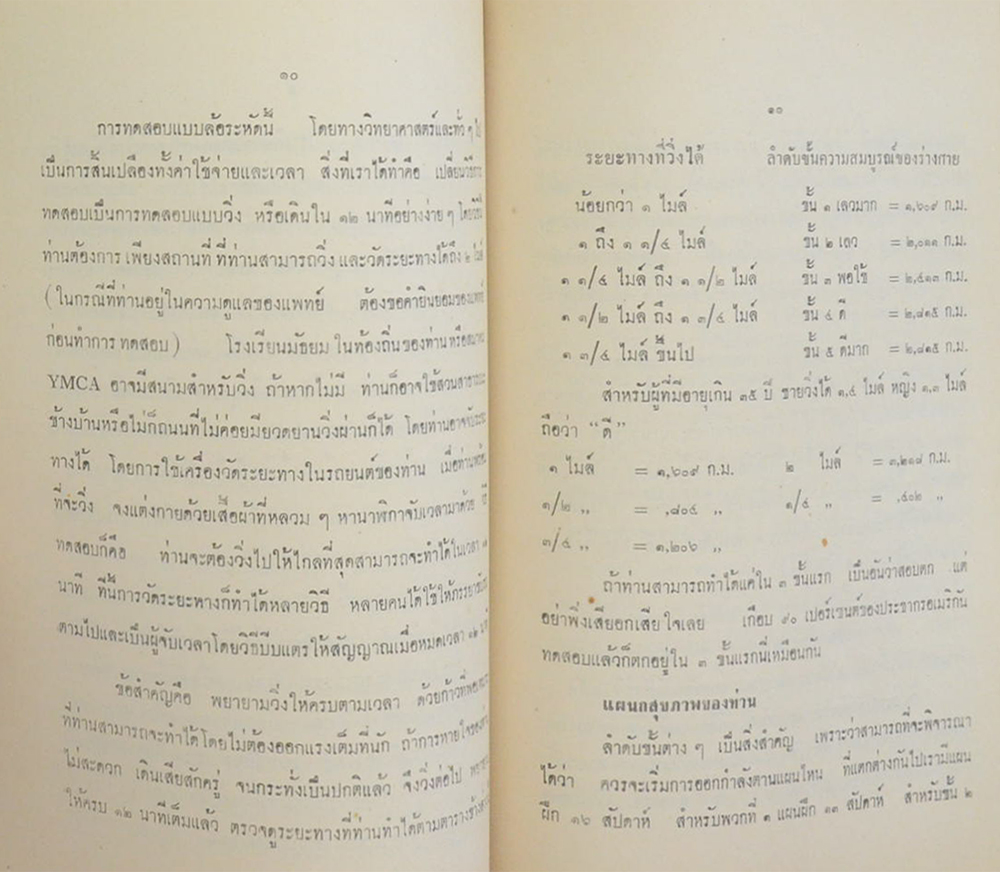 ๑๐
การทดสอบแบบล้อระหัดนี้ โดยทางวิทยาศาสตร์และทั่ว ๆ ไป
เป็นการสิ้นเปลืองทั้งค่าใช้จ่ายและเวลา สิ่งที่เราได้ทำคือ เปลี่ยนวิธีการ
ทดสอบเป็นการทดสอบแบบวิ่ง หรือเดินใน ๑๒ นาทีอย่างง่าย ๆ
ท่านต้องการ เพียงสถานที่ ที่ท่านสามารถวิ่ง และวัดระยะทางได้ถึง ๒ ไมล์
(ในกรณีที่ท่านอยู่ในความดูแลของแพทย์ ต้องขอคำยินยอมของแพทย์
ก่อนทำการ ทดสอบ) โรงเรียนมัธยม ในท้องถิ่นของท่าน หรือสมาคม
YMCA อาจมีสนามสำหรับวิ่ง ถ้าหากไม่มี ท่านก็อาจใช้สวนสาธารณะ
ข้างบ้านหรือไม่ก็ถนนที่ไม่ค่อยมียวดยานวิ่งผ่านก็ได้ โดยท่านอาจจับระยะ
ทางได้ โดยการใช้เครื่องวัดระยะทางในรถยนต์ของท่าน เมื่อท่านพร้อม
ที่จะวิ่ง จงแต่งกายด้วยเสื้อผ้าที่หลวม ๆ หานาฬิกาจับเวลามาด้วย
ทดสอบก็คือ ท่านจะต้องวิ่งไปให้ไกลที่สุดสามารถจะทำได้ในเวลา
นาที ที่นี้การวัดระยะหางก็ทำได้หลายวิธี หลายคนได้ใช้ให้ภรรยาขับรถ
ตามไปและเป็นผู้จับเวลาโดยวิธีบีบแตรให้สัญญาณเมื่อหมดเวลา ๑๒ นาที
ข้อสำคัญคือ พยายามวิ่งให้ครบตามเวลา ด้วยก้าวที่พอเหมาะ
ที่ท่านสามารถจะทำได้โดยไม่ต้องออกแรงเต็มที่นัก ถ้าการหายใจของท่าน
ไม่สะดวก เดินเสียสักครู่ จนกระทั่งเป็นปกติแล้ว จึงวิ่งต่อไป
ให้ครบ ๑๒ นาทีเต็มแล้ว ตรวจดูระยะทางที่ท่านทำได้ตามตารางข้างล่าง
๑๑
ระยะทางที่วิ่งได้ ลำดับขั้นความสมบูรณ์ของร่างกาย
น้อยกว่า ๑ ไมล์ ขั้น ๑ เลวมาก = ๑,๖๐๙ ก.ม.
๑ ถึง ๑ ๑/๔ ไมล์ ขั้น ๒ เลว = ๒,๐๑๑ ก.ม.
๑ ๑/๔ ไมล์ ถึง ๑ ๑/๒ ไมล์ ขั้น ๓ พอใช้ = ๒,๔๑๓ ก.ม.
๑ ๑/๒ ไมล์ ถึง ๑ ๓/๔ ไมล์ ขั้น ๔ ดี = ๒,๘๑๕ ก.ม.
๑ ๓/๔ ไมล์ ขึ้นไป ขั้น ๕ ดีมาก = ๒,๘๑๕ ก.ม.
สำหรับผู้ที่มีอายุเกิน ๓๕ ปี ชายวิ่งได้ ๑,๔ ไมล์ หญิง ๑,๓ ไมล์
ถือว่า “ดี”
๑ ไมล์ = ๑,๖๐๙ ก.ม. ๒ ไมล์ = ๓,๒๑๘ ก.ม.
๑/๒ „ = ,๘๐๔ „ ๑/๔ „ = ,๔๐๒ „
๓/๔ „ = ๑,๒๐๖ „
ถ้าท่านสามารถทำได้แค่ใน ๓ ขั้นแรก เป็นอันว่าสอบตก แต่
อย่าพึ่งเสียอกเสียใจเลย เกือบ ๙๐ เปอร์เซนต์ของประชากรอเมริกัน
ทดสอบแล้วก็ตกอยู่ใน ๓ ขั้นแรกนี่เหมือนกัน
แผนกสุขภาพของท่าน
ลำดับขั้นต่าง ๆ เป็นสิ่งสำคัญ เพราะว่าสามารถที่จะพิจารณา
ได้ว่า ควรจะเริ่มการออกกำลังตามแผนไหน ที่แตกต่างกันไปเรามีแผน
ฝึก ๑๖ สัปดาห์ สำหรับพวกที่ ๑ แผนฝึก ๑๓ สัปดาห์ สำหรับขั้น ๒